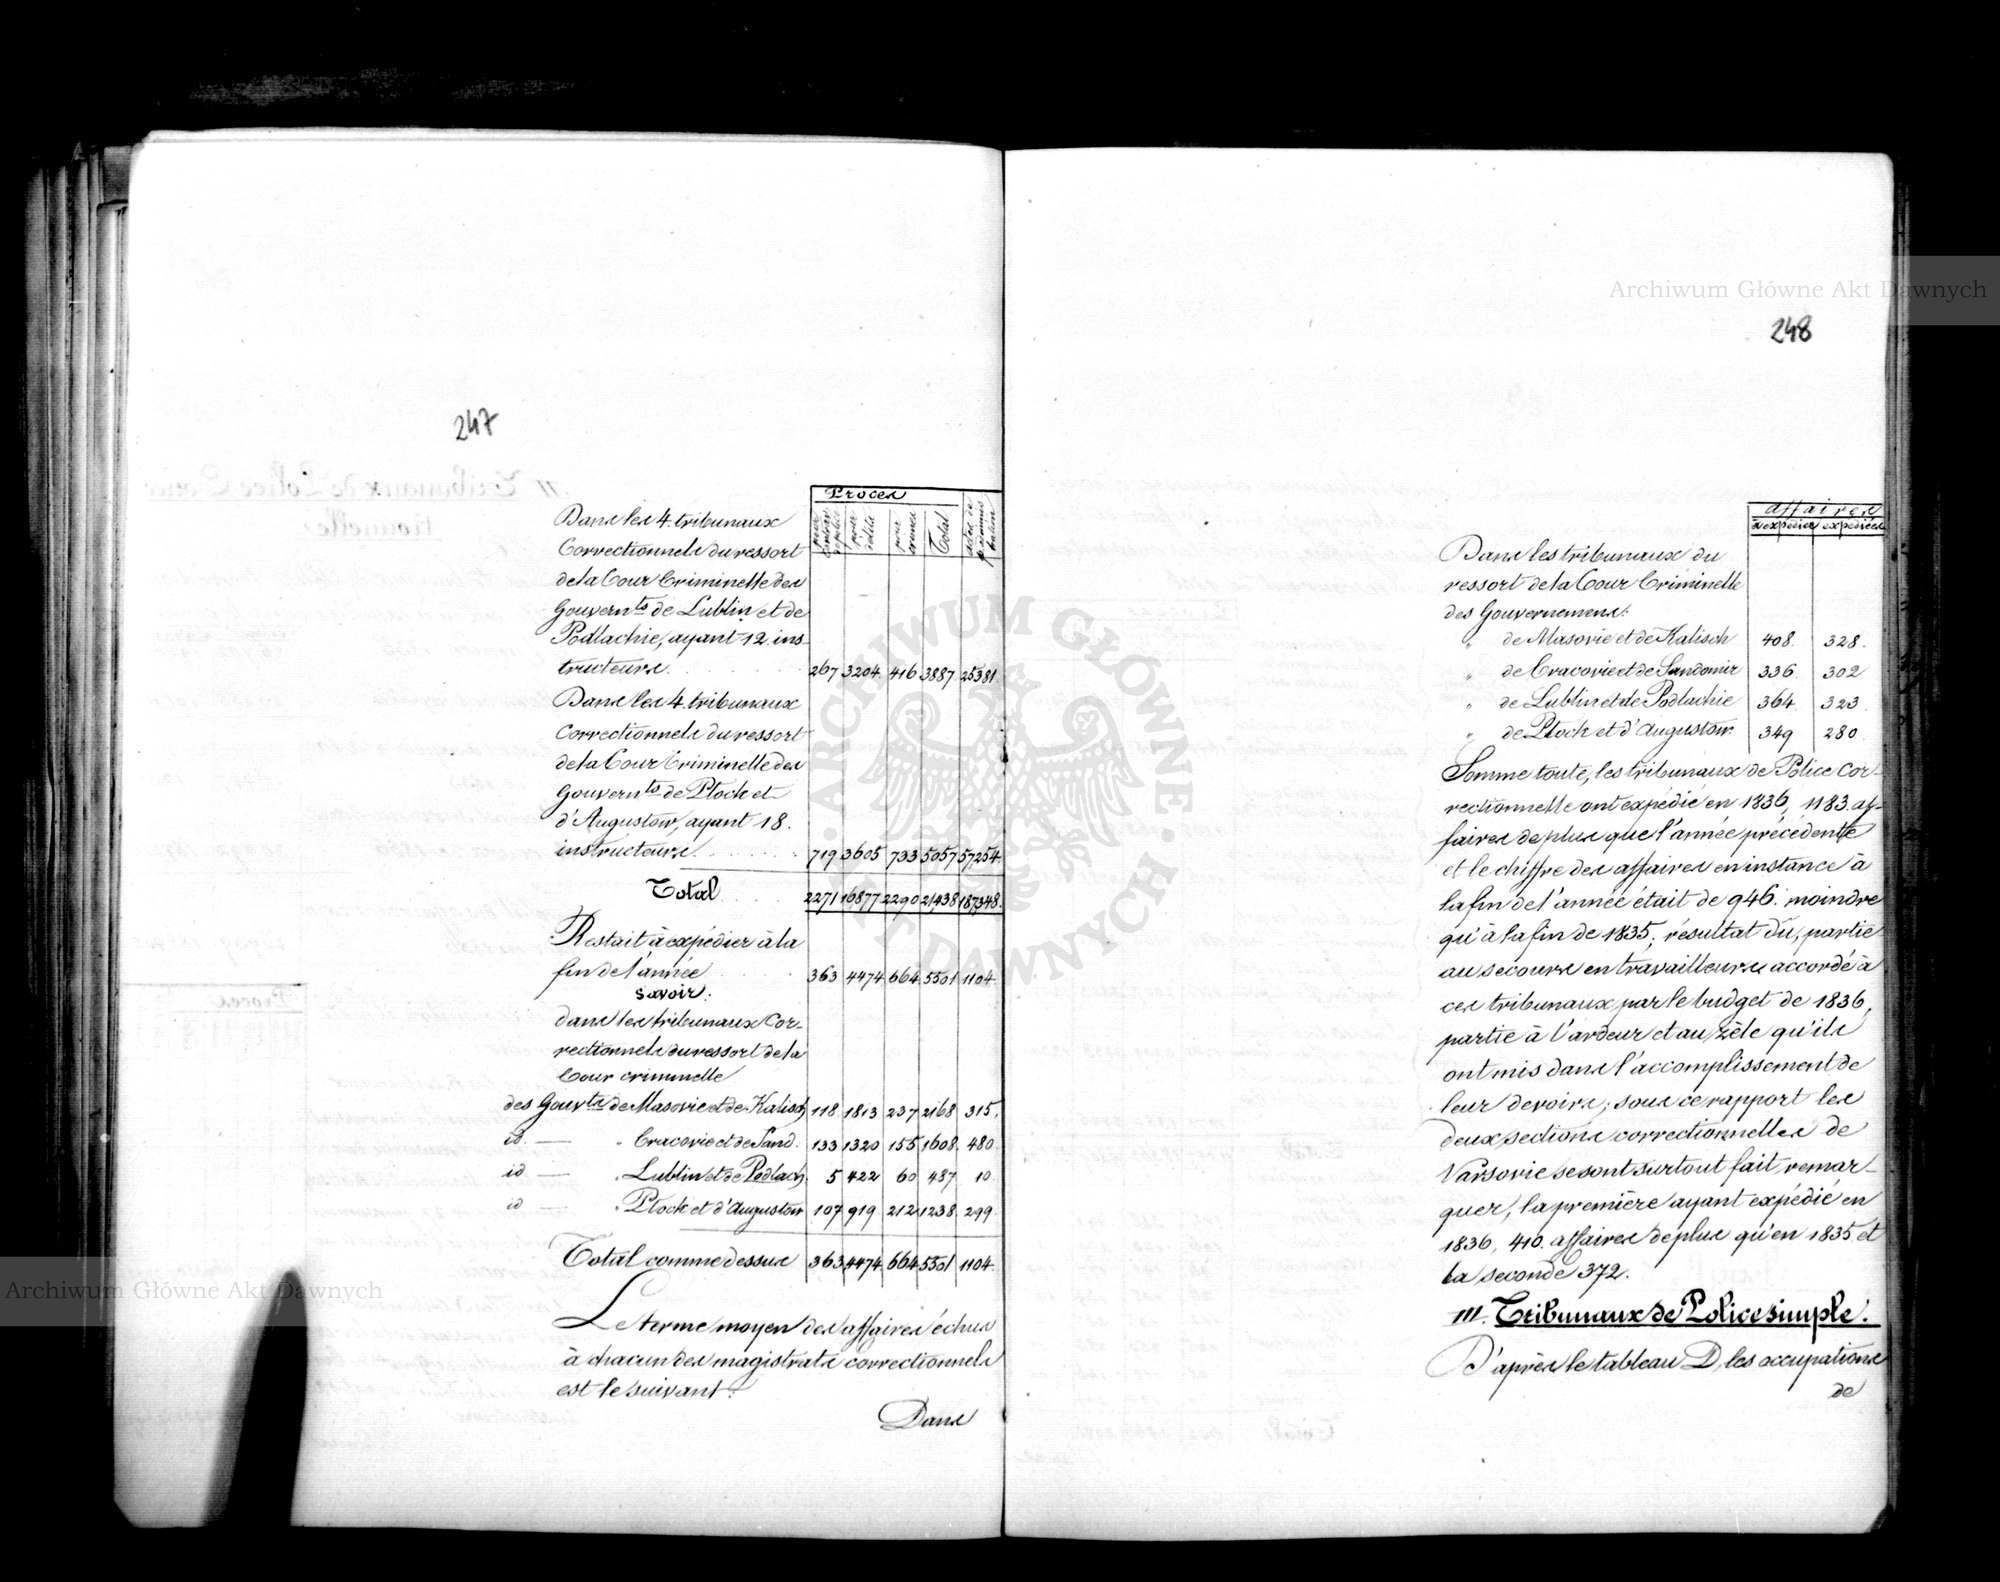 247
Procès
pour contraventions de police | pour délits | pour crimes | Total | actes de
Dans les 4. tribunaux
Correctionnels du ressort
de la Cour Criminelle des
Gouvernts de Lublin et de
Podlachie, ayant 12. ins-
tructeurs. 267 3204. 416 3887. 25381.
Dans les 4. tribunaux
Correctionnels du ressort
de la Cour Criminelle des
Gouvernts de Plock et
d'Augustow, ayant 18.
instructeurs. 719 3605 733 5057 57,254.
Total 2271 16877 2290 21438 187,348.
Restait à expédier à la
fin de l'année 363 4474 664 5501 1104.
Savoir:
dans les tribunaux Cor-
rectionnels du ressort de la
Cour criminelle
des Gouvts de Masovie et de Kalisch 118. 1813 237 2168 315.
id. — " Cracovie et de Sand. 133 1320 155 1608. 480.
id — " Lublin et de Podlach. 5 422 60 487 10.
id — " Plock et d'Augustow 107 919 212 1238 299.
Total comme dessus 363 4474 664 5501 1104.
Le terme moyen des affaires échus
à chacun des magistrats correctionnels
est le suivant:
Dans
248
affaires
à expédier expédiées
Dans les tribunaux du
ressort de la Cour Criminelle
des Gouvernemens:
" de Masovie et de Kalisch 408. 328.
" de Cracovie et de Sandomir 336. 302
" de Lublin et de Podlachie 364. 323.
" de Plock et d'Augustow. 349 280.
Somme toute, les tribunaux de Police Cor-
rectionnelle ont expédié en 1836, 1183. af-
faires de plus que l'année précédente
et le chiffre des affaires en instance à
la fin de l'année était de 946. moindre
qu'à la fin de 1835; résultat dû, partie
au secours en travailleurs accordé à
ces tribunaux par le budget de 1836,
partie à l'ardeur et au zèle qu'ils
ont mis dans l'accomplissement de
leur devoirs; sous ce rapport les
deux sections correctionnelles de
Varsovie se sont surtout fait remar-
quer, la première ayant expédié en
1836, 410. affaires de plus qu'en 1835 et
la seconde 372.
III. Tribunaux de Police simple.
D'après le tableau D, les occupations
de
Archiwum Główne Akt Dawnych
Archiwum Główne Akt Dawnych
ARCHIWUM GŁÓWNE AKT DAWNYCH